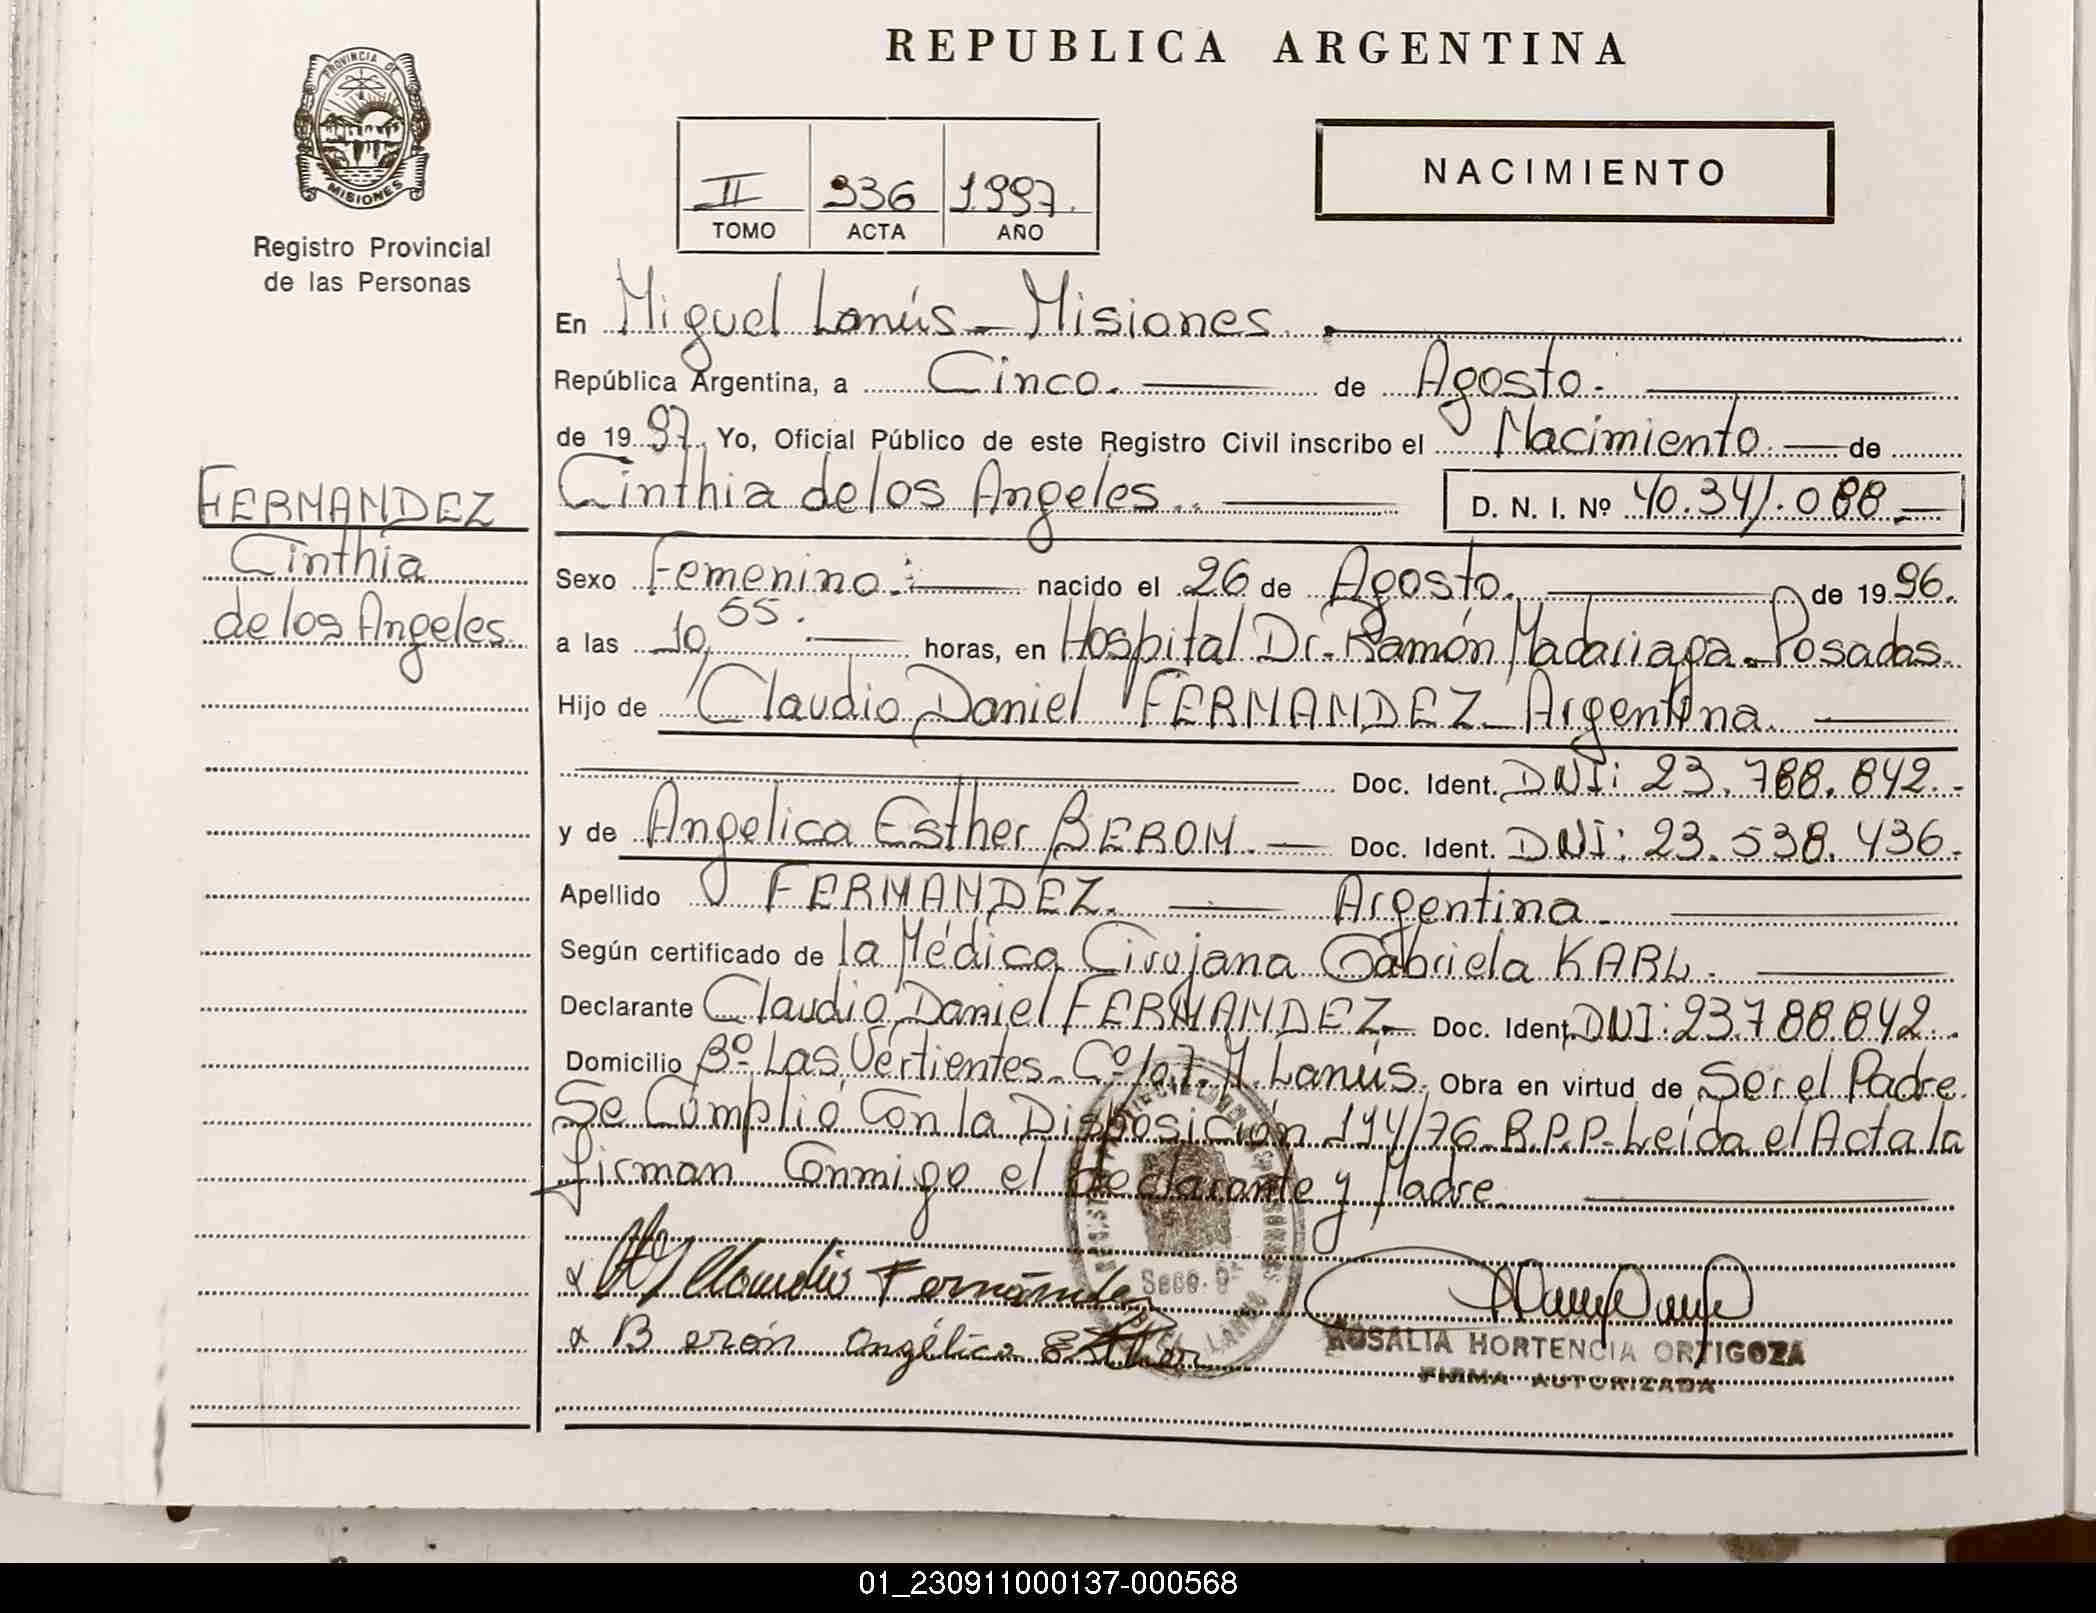 REPUBLICA ARGENTINA
PROVINCIA DE
MISIONES
Registro Provincial
de las Personas
II 936 1997.
TOMO ACTA AÑO
NACIMIENTO
En Miguel Lanús - Misiones.
República Argentina, a Cinco. de Agosto.
de 1997. Yo, Oficial Público de este Registro Civil inscribo el Nacimiento. de
FERNANDEZ
Cinthia
de los Angeles.
Cinthia de los Angeles. D. N. I. Nº 40.341.088.
Sexo Femenino. nacido el 26 de Agosto. de 1996.
a las 10,55. horas, en Hospital Dr. Ramón Madariaga - Posadas.
Hijo de Claudio Daniel FERNANDEZ - Argentina.
Doc. Ident. DNI: 23.788.842.-
y de Angelica Esther BERON. Doc. Ident. DNI: 23.538.436.-
Apellido FERNANDEZ. Argentina.
Según certificado de la Médica Cirujana Gabriela KARL.
Declarante Claudio Daniel FERNANDEZ. Doc. Ident. DNI: 23.788.842.
Domicilio Bº Las Vertientes - Cº 107. M. Lanús. Obra en virtud de Ser el Padre.
Se Cumplió Con la Disposición 114/76 - R.P.P. - Leída el Acta la
firman Conmigo el declarante y Madre.
Claudio Fernández
Berón Angélica Esther
Secc. 6ª
ROSALIA HORTENCIA ORTIGOZA
FIRMA AUTORIZADA
01_230911000137-000568